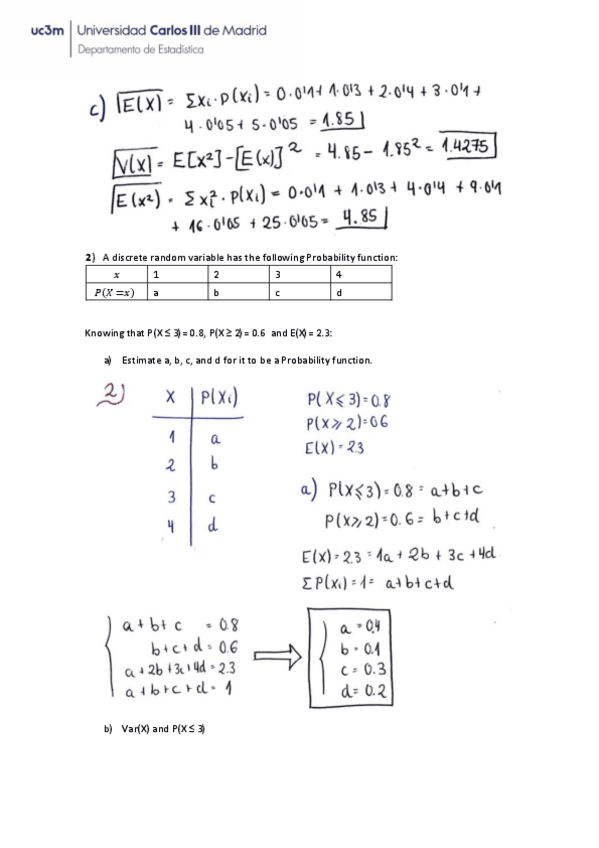 uc3m | Universidad Carlos III de Madrid
Departamento de Estadística
c) E(X) = Σxi·P(Xi) = 0·0'1+ 1·0'3 + 2·0'4 + 3·0'1 +
4·0'05 + 5·0'05 = 1.85
V(x) = E[x²]-[E(x)]² = 4.85 - 1.85² = 1.4275
E(x²) = Σxi²·P(Xi) = 0·0'1 + 1·0'3 + 4·0'4 + 9·0'1
+ 16·0'05 + 25·0'05 = 4.85
2) A discrete random variable has the following Probability function:
x 1 2 3 4
P(X =x) a b c d
Knowing that P(X ≤ 3) = 0.8, P(X ≥ 2) = 0.6 and E(X) = 2.3:
a) Estimate a, b, c, and d for it to be a Probability function.
2) X P(Xi)
1 a
2 b
3 c
4 d
P(X⩽3)=0.8
P(X⩾2)=0.6
E(X)=2.3
a) P(X⩽3)=0.8 = a+b+c
P(X⩾2)=0.6 = b+c+d
E(X)=2.3 = 1a + 2b + 3c + 4d
ΣP(Xi)=1= a+b+c+d
a + b + c = 0.8
b + c + d = 0.6
a + 2b + 3c + 4d = 2.3
a + b + c + d = 1
a = 0.4
b = 0.1
c = 0.3
d = 0.2
b) Var(X) and P(X ≤ 3)